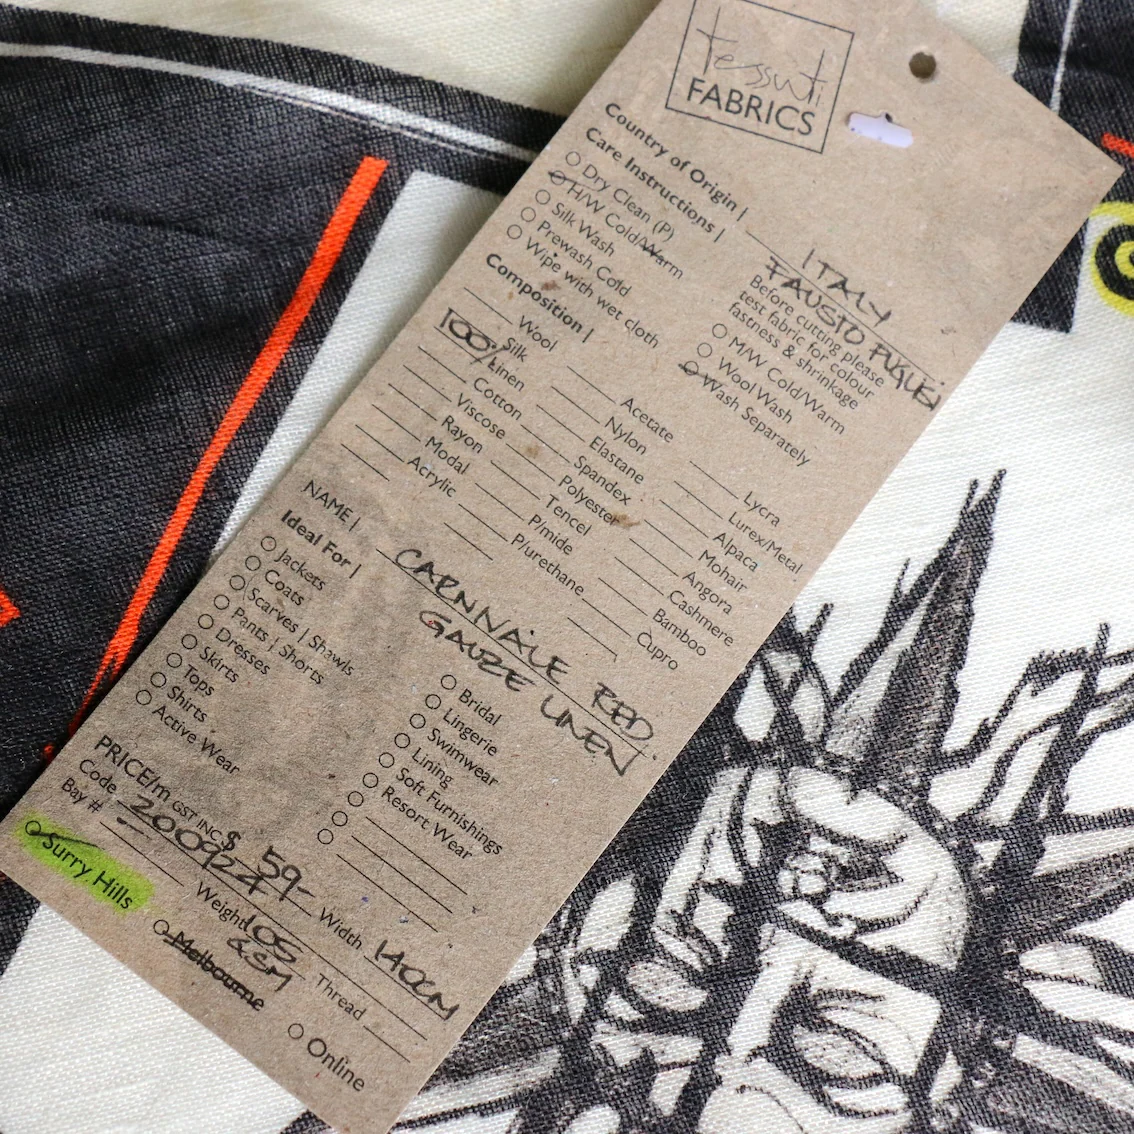 tessuti
FABRICS
Country of Origin | ITALY
FAUSTO PUGLISI
Care Instructions |
Before cutting please
test fabric for colour
fastness & shrinkage
Dry Clean (P)
H/W Cold/Warm
Silk Wash
Prewash Cold
Wipe with wet cloth
M/W Cold/Warm
Wool Wash
Wash Separately
Composition |
Wool
Silk
100% Linen
Cotton
Viscose
Rayon
Modal
Acrylic
Acetate
Nylon
Elastane
Spandex
Polyester
Tencel
P/mide
P/urethane
Lycra
Lurex/Metal
Alpaca
Mohair
Angora
Cashmere
Bamboo
Cupro
NAME | CARNNALE RED
GAUZE LINEN
Ideal For |
Jackets
Coats
Scarves | Shawls
Pants | Shorts
Dresses
Skirts
Tops
Shirts
Active Wear
Bridal
Lingerie
Swimwear
Lining
Soft Furnishings
Resort Wear
PRICE/m GST INC. $ 59- Width 140CM
Code 200924 Weight 105 GSM Thread
Bay #
Surry Hills
Melbourne
Online